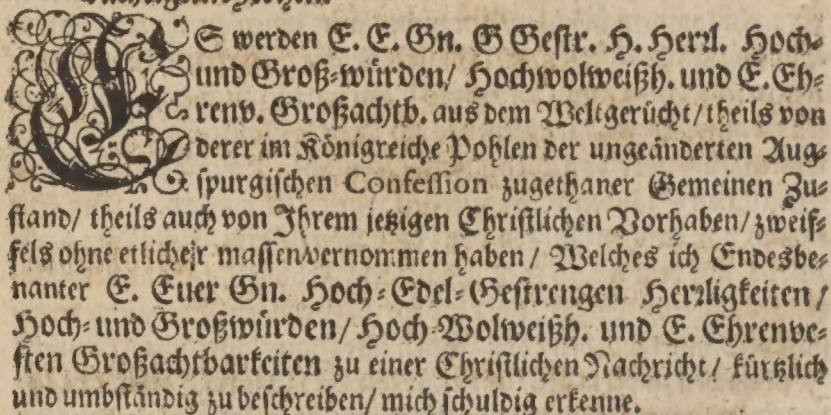 ES werden E. E. Gn. G Gestr. H. Herzl. Hoch-
und Groß-würden/ Hochwolweißh. und E. Eh-
renv. Großachtb. aus dem Weltgerücht/ theils von
derer im Königreiche Pohlen der ungeänderten Aug-
spurgischen Confession zugethaner Gemeinen Zu-
stand/ theils auch von Ihrem jetzigen Christlichen Vorhaben/ zweif-
fels ohne etlicher massen vernommen haben/ Welches ich Endesbe-
nanter E. Euer Gn. Hoch-Edel-Gestrengen Herzligkeiten/
Hoch- und Großwürden/ Hoch-Wolweißh. und E. Ehrenve-
sten Großachtbarkeiten zu einer Christlichen Nachricht/ kürtzlich
und umbständig zu beschreiben/ mich schuldig erkenne.